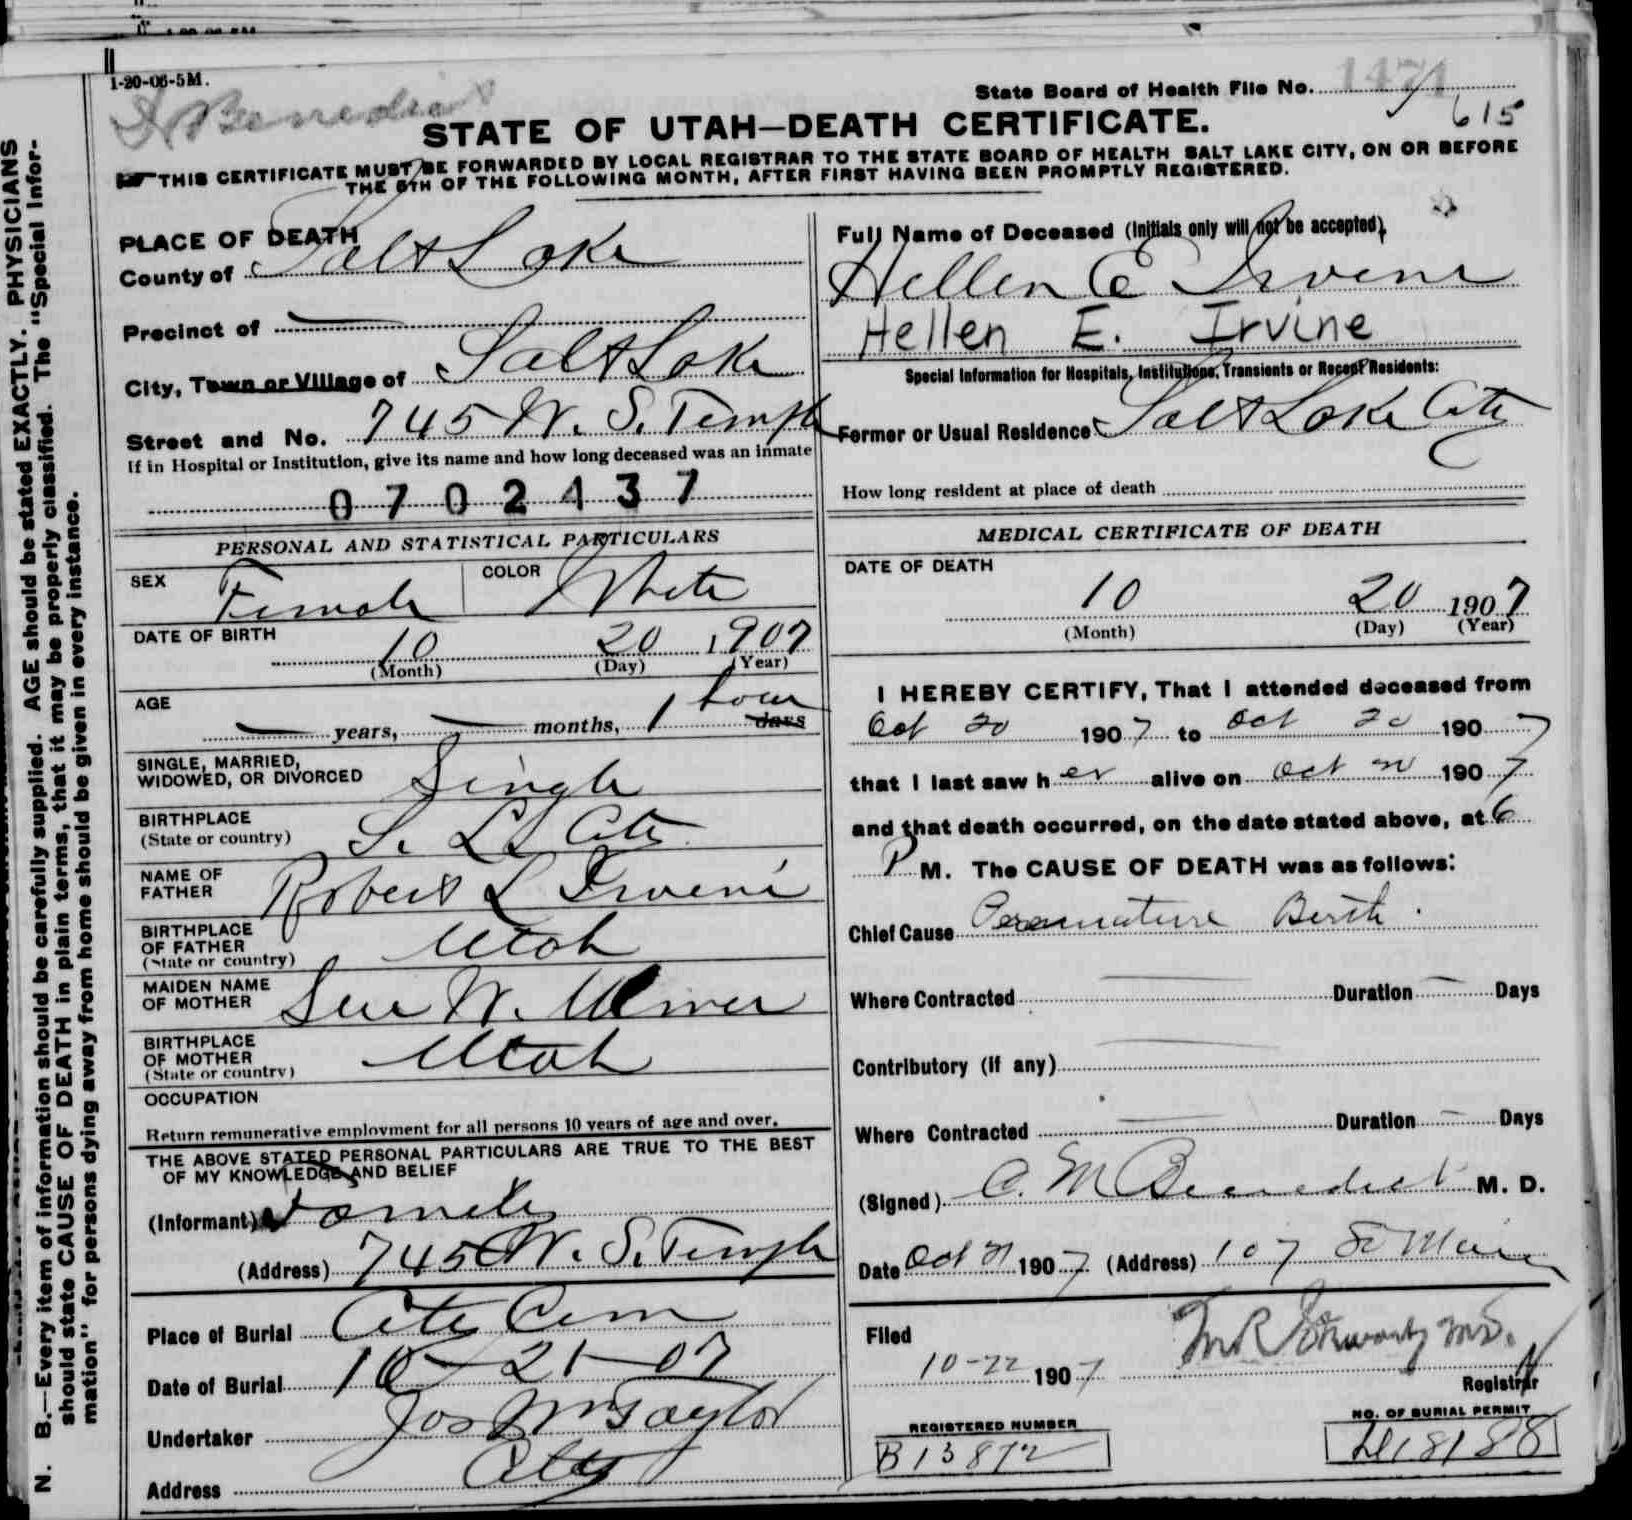 1-20-06-5M.
Benedict
State Board of Health File No. 1471
615
STATE OF UTAH—DEATH CERTIFICATE.
THIS CERTIFICATE MUST BE FORWARDED BY LOCAL REGISTRAR TO THE STATE BOARD OF HEALTH SALT LAKE CITY, ON OR BEFORE
THE 5TH OF THE FOLLOWING MONTH, AFTER FIRST HAVING BEEN PROMPTLY REGISTERED.
PLACE OF DEATH
County of Salt Lake
Precinct of —
City, Town or Village of Salt Lake
Street and No. 745 W. S. Temple
If in Hospital or Institution, give its name and how long deceased was an inmate
0702437
Full Name of Deceased (Initials only will not be accepted),
Hellen E Irvine
Hellen E. Irvine
Special Information for Hospitals, Institutions, Transients or Recent Residents:
Former or Usual Residence Salt Lake City
How long resident at place of death
PERSONAL AND STATISTICAL PARTICULARS
SEX Female COLOR White
DATE OF BIRTH 10 20 1907
(Month) (Day) (Year)
AGE — years, — months, 1 hour days
SINGLE, MARRIED,
WIDOWED, OR DIVORCED Single
BIRTHPLACE
(State or country) S. L. City
NAME OF
FATHER Robert L Irvine
BIRTHPLACE
OF FATHER
(State or country) Utah
MAIDEN NAME
OF MOTHER W.
BIRTHPLACE
OF MOTHER
(State or country) Utah
OCCUPATION
Return remunerative employment for all persons 10 years of age and over.
THE ABOVE STATED PERSONAL PARTICULARS ARE TRUE TO THE BEST
OF MY KNOWLEDGE AND BELIEF
(Informant) Family
(Address) 745 W. S. Temple
Place of Burial City Cem
Date of Burial 10-21-07
Undertaker Jos Wm Taylor
Address City
MEDICAL CERTIFICATE OF DEATH
DATE OF DEATH
10 20 1907
(Month) (Day) (Year)
I HEREBY CERTIFY, That I attended deceased from
Oct 20 1907 to Oct 20 1907
that I last saw her alive on Oct 20 1907
and that death occurred, on the date stated above, at 6
P M. The CAUSE OF DEATH was as follows:
Chief Cause Premature Birth.
Where Contracted — Duration — Days
Contributory (if any) —
Where Contracted — Duration — Days
(Signed) C. M Benedict M. D.
Date Oct 21 1907 (Address) 107 So Main
Filed
10-22 1907
Registrar
REGISTERED NUMBER
B13872
NO. OF BURIAL PERMIT
18188
N. B.—Every item of information should be carefully supplied. AGE should be stated EXACTLY. PHYSICIANS
should state CAUSE OF DEATH in plain terms, that it may be properly classified. The "Special Infor-
mation" for persons dying away from home should be given in every instance.